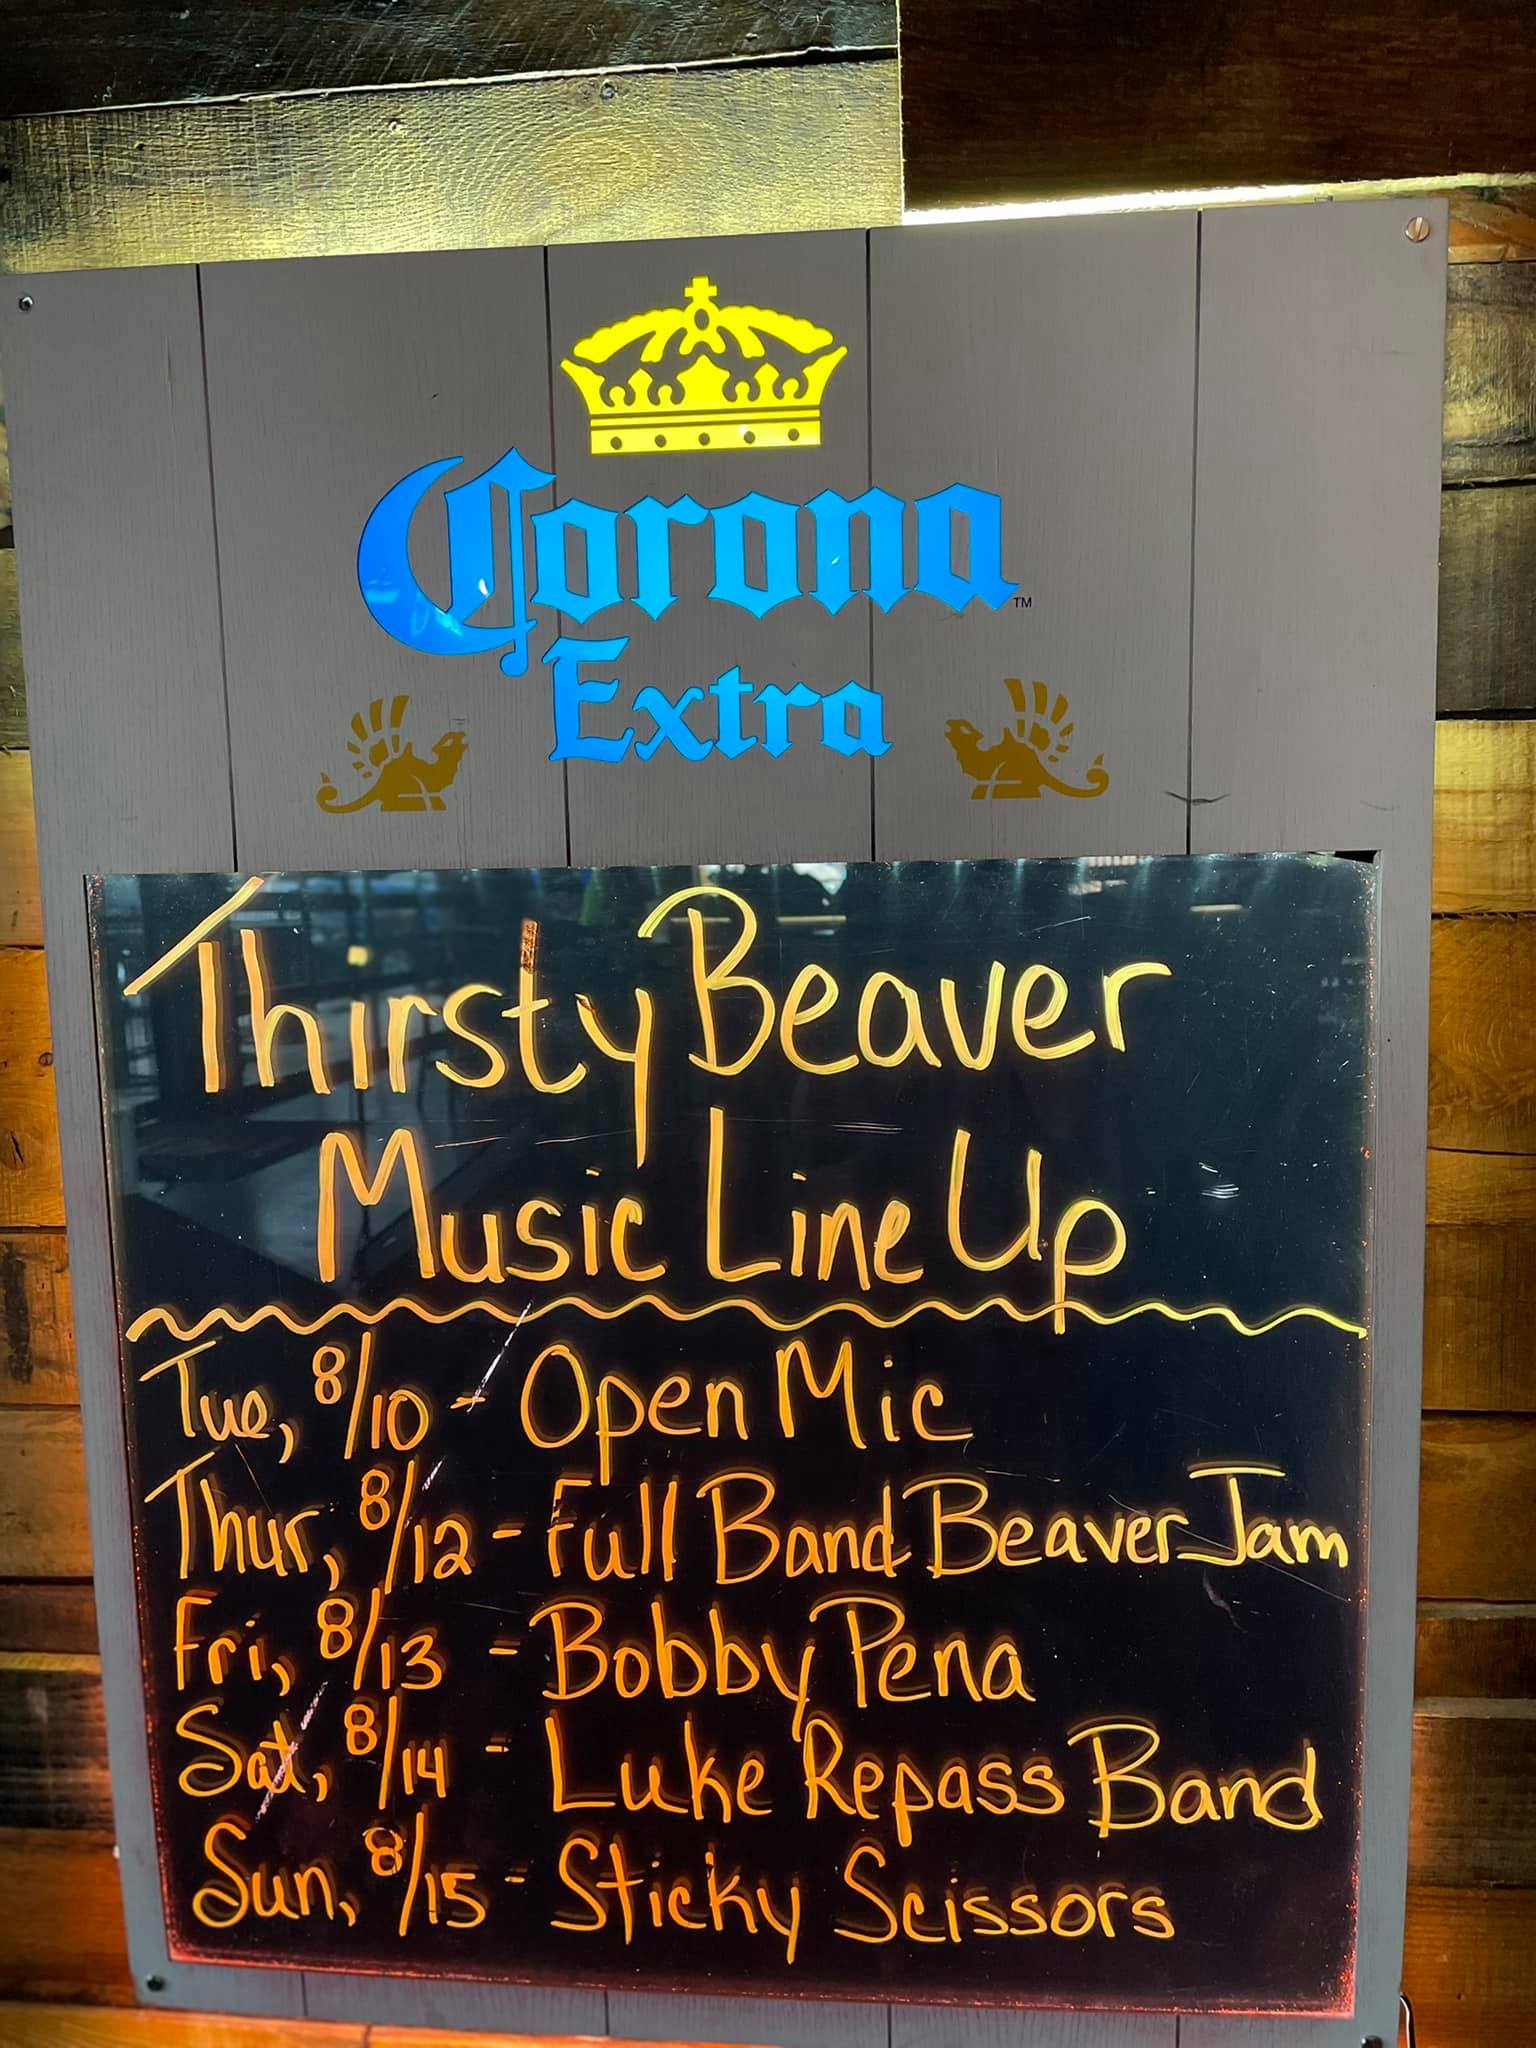 Corona
TM
Extra
Thirsty Beaver
Music Line Up
Tue, 8/10 - Open Mic
Thur, 8/12 - Full Band Beaver Jam
Fri, 8/13 - Bobby Pena
Sat, 8/14 - Luke Repass Band
Sun, 8/15 - Sticky Scissors